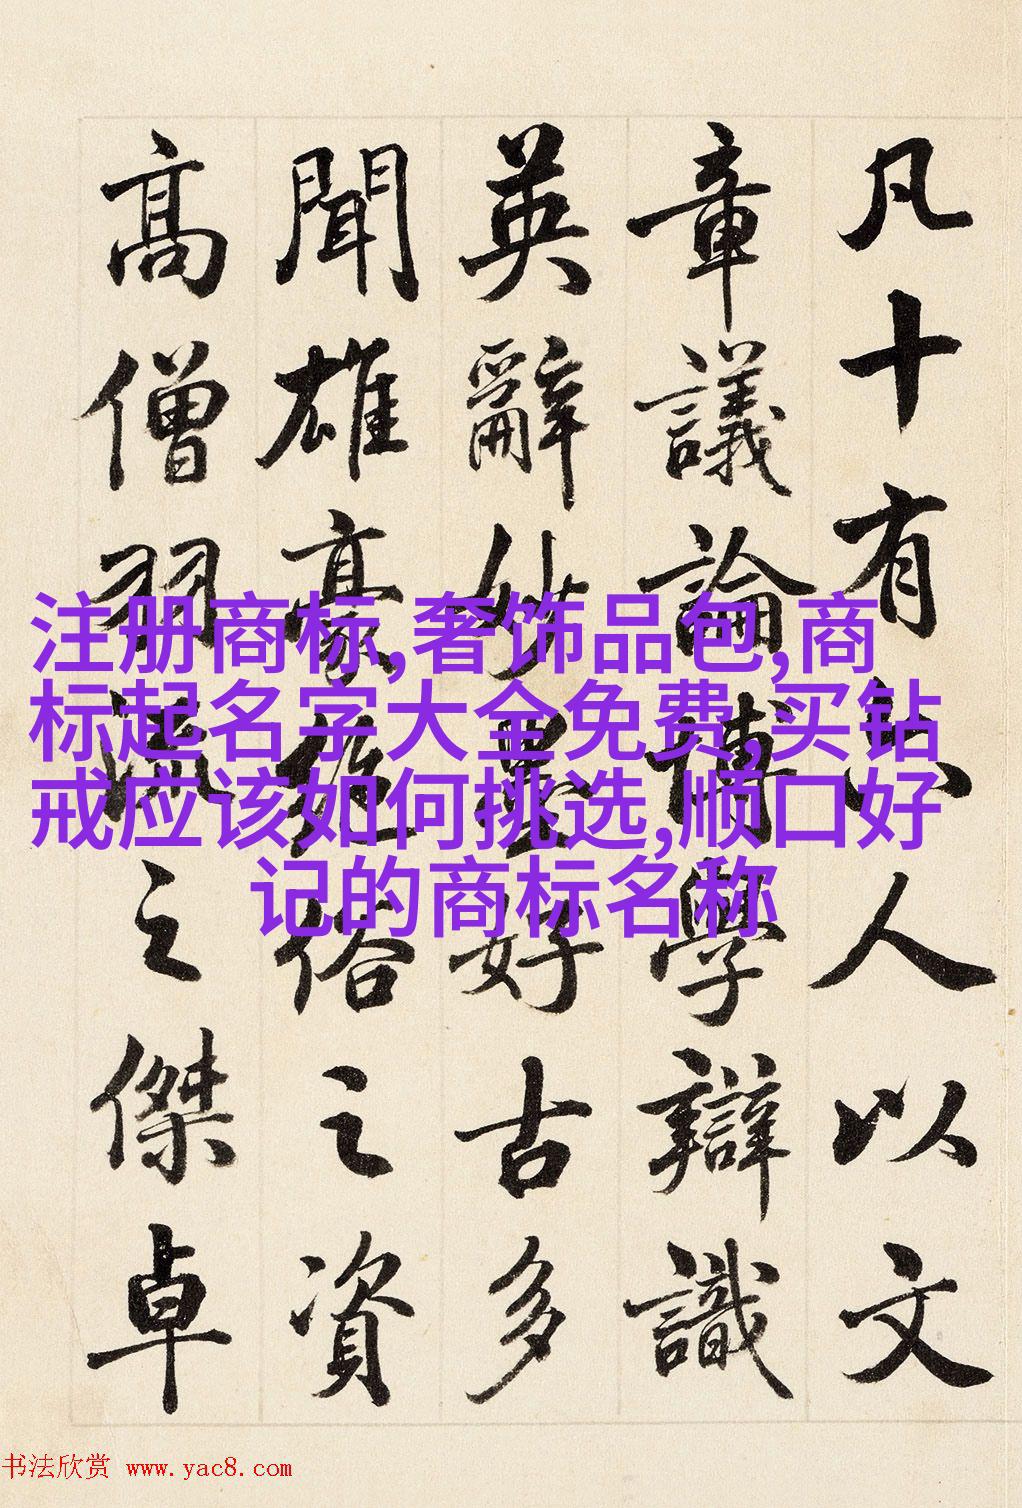 凡十有六人以文
章議論博學辯識
英辭妙墨好古多
聞雄豪絕俗之資
高僧羽流之傑卓
注册商标,奢饰品包,商
标起名字大全免费,买钻
戒应该如何挑选,顺口好
记的商标名称
书法欣赏 www.yac8.com